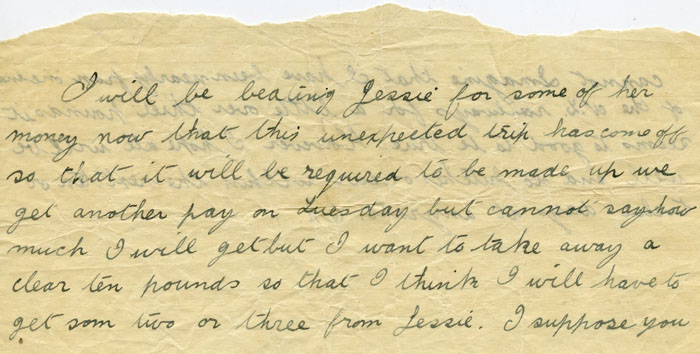 I will be beating Jessie for some of her
money now that this unexpected trip has come off
so that it will be required to be made up we
get another pay on Tuesday but cannot say how
much I will get but I want to take away a
clear ten pounds so that I think I will have to
get som two or three from Jessie. I suppose you